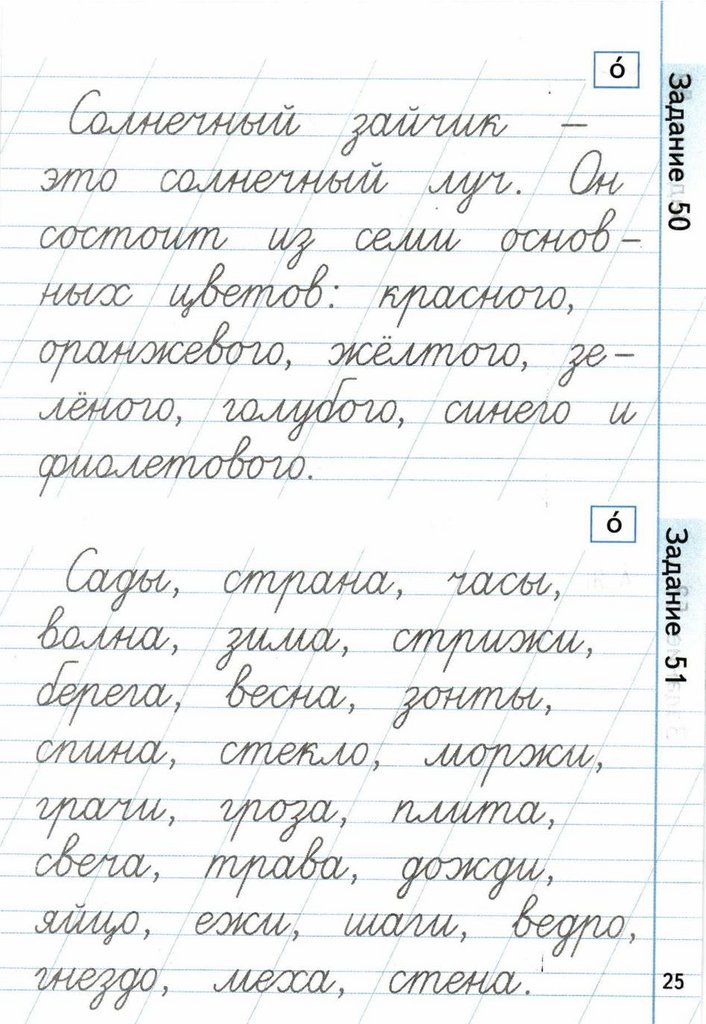 ó
Задание 50
Солнечный зайчик –
это солнечный луч. Он
состоит из семи основ–
ных цветов: красного,
оранжевого, жёлтого, зе–
лёного, голубого, синего и
фиолетового.
ó
Задание 51
Сады, страна, часы,
волна, зима, стрижи,
берега, весна, зонты,
спина, стекло, моржи,
грачи, гроза, плита,
свеча, трава, дожди,
яйцо, ежи, шаги, ведро,
гнездо, меха, стена.
25